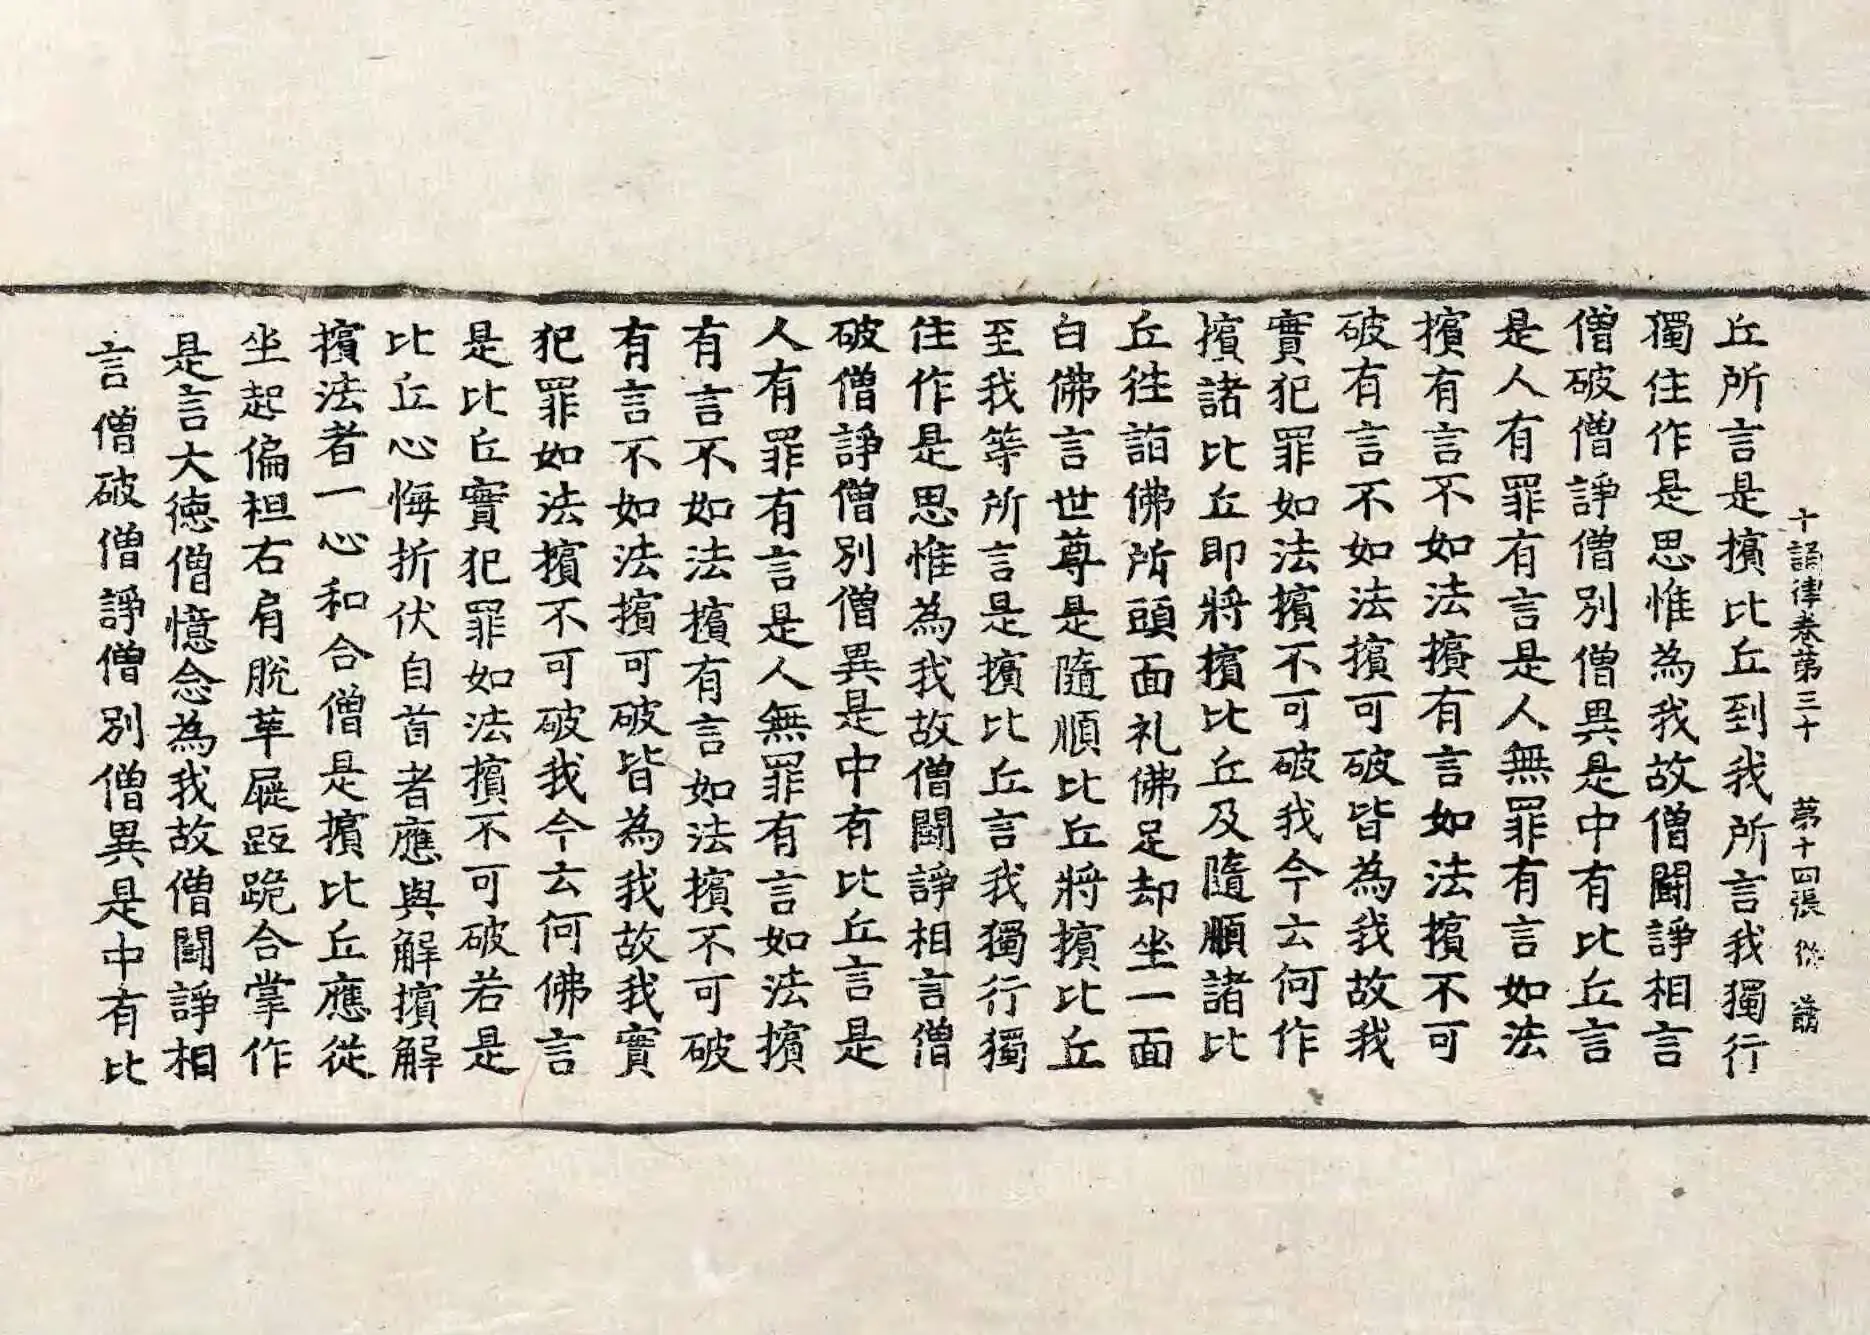 十誦律卷第三十 第十四張 従
丘所言是擯比丘到我所言我獨行
獨住作是思惟為我故僧鬪諍相言
僧破僧諍僧別僧異是中有比丘言
是人有罪有言是人無罪有言如法
擯有言不如法擯有言如法擯不可
破有言不如法擯可破皆為我故我
實犯罪如法擯不可破我今云何作
擯諸比丘即將擯比丘及隨順諸比
丘徃詣佛所頭面礼佛足却坐一面
白佛言世尊是隨順比丘將擯比丘
至我等所言是擯比丘言我獨行獨
住作是思惟為我故僧鬪諍相言僧
破僧諍僧別僧異是中有比丘言是
人有罪有言是人無罪有言如法擯
有言不如法擯有言如法擯不可破
有言不如法擯可破皆為我故我實
犯罪如法擯不可破我今云何佛言
是比丘實犯罪如法擯不可破若是
比丘心悔折伏自首者應與解擯解
擯法者一心和合僧是擯比丘應従
坐起偏袒右肩脫革屣跪合掌作
是言大徳僧憶念為我故僧鬪諍相
言僧破僧諍僧別僧異是中有比